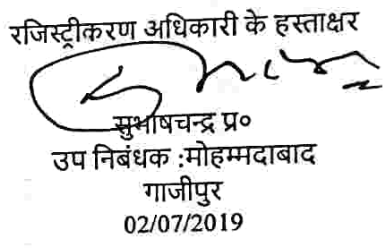 रजिस्ट्रीकरण अधिकारी के हस्ताक्षर
सुभाषचन्द्र प्र०
उप निबंधक :मोहम्मदाबाद
गाजीपुर
02/07/2019